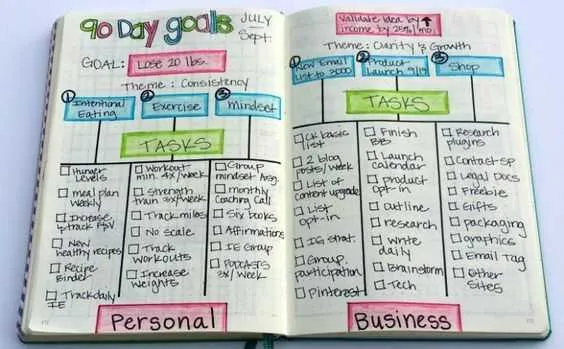 90 Day goals
JULY
Sept.
GOAL: Lose 20 lbs.
Theme: Consistency
1 Intentional Eating
2 Exercise
3 Mindset
TASKS
Hunger Levels
meal plan weekly
Increase & track
New healthy recipes
Recipe Binder
Track daily IE
Workout min. 4x/week
Strength train 3x/week
Track miles
No scale
Track workouts
Increase weights
Group mindset Aug.
monthly Coaching Call
Six books
Affirmations
IE Group
Podcasts 3x/week
Personal
Validate idea by
income by 25%/mo.
Theme: Clarity & Growth
1 Grow Email List to 2000
2 Product Launch 9/19
3 Shop
TASKS
CK basic list
2 blog posts/week
List of content upgrade
List opt-in
IG strat.
Group participation
Pinterest
Finish
Launch calendar
product opt-in
outline
research
write daily
Brainstorm
Tech
Research plugins
Contact SP
Legal Docs
Freebie
Gifts
packaging
graphics
Email Tag
Other Sites
Business